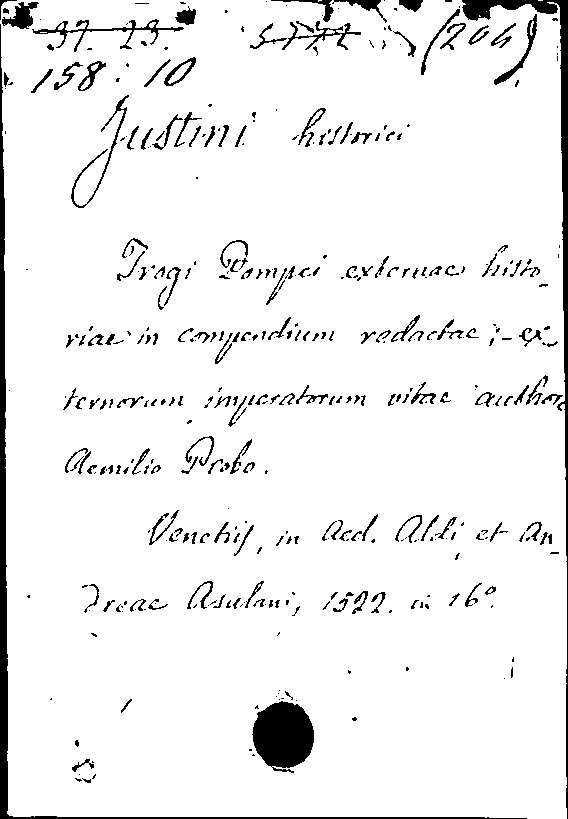 37. 23. 5722 (204)
158:10
Justini historici
Trogi Pompei externae histo-
riae in compendium redactae; - ex-
ternorum imperatorum vitae authore
Aemilio Probo.
Venetiis, in Aed. Aldi, et An-
dreae Asulani, 1522. in 16º.